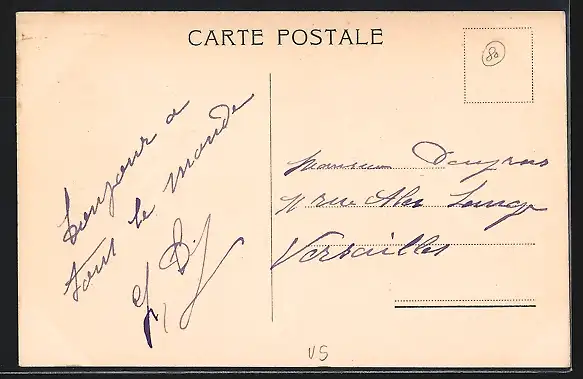 CARTE POSTALE
80
bonjour a
tout le monde
Monsieur
rue Alex Lange
Versailles
VS